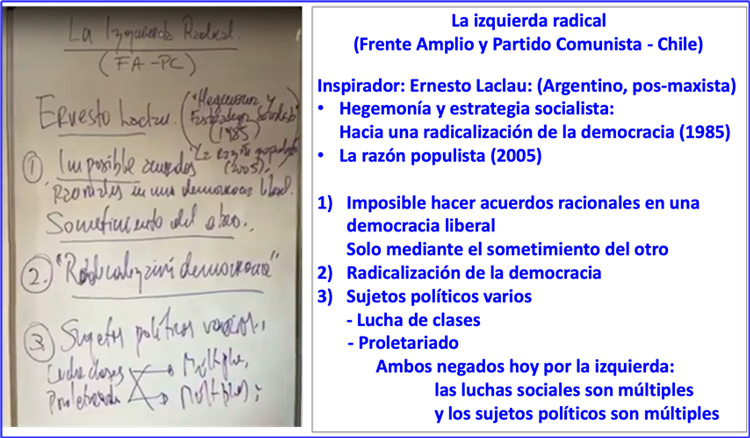 La Izquierda Radical.
(FA-PC)
Ernesto Laclau. ("Hegemonía y
Estrategia Socialista"
(1985)
"La razón populista"
(2005).
① Imposible acuerdos
Racionales en una democracia liberal.
Sometimiento del otro.
② "Radicalización democracia"
③ Sujetos políticos varios.
Lucha clases Múltiples
Proletariado Múltiples
La izquierda radical
(Frente Amplio y Partido Comunista - Chile)
Inspirador: Ernesto Laclau: (Argentino, pos-maxista)
• Hegemonía y estrategia socialista:
Hacia una radicalización de la democracia (1985)
• La razón populista (2005)
1) Imposible hacer acuerdos racionales en una
democracia liberal
Solo mediante el sometimiento del otro
2) Radicalización de la democracia
3) Sujetos políticos varios
- Lucha de clases
- Proletariado
Ambos negados hoy por la izquierda:
las luchas sociales son múltiples
y los sujetos políticos son múltiples